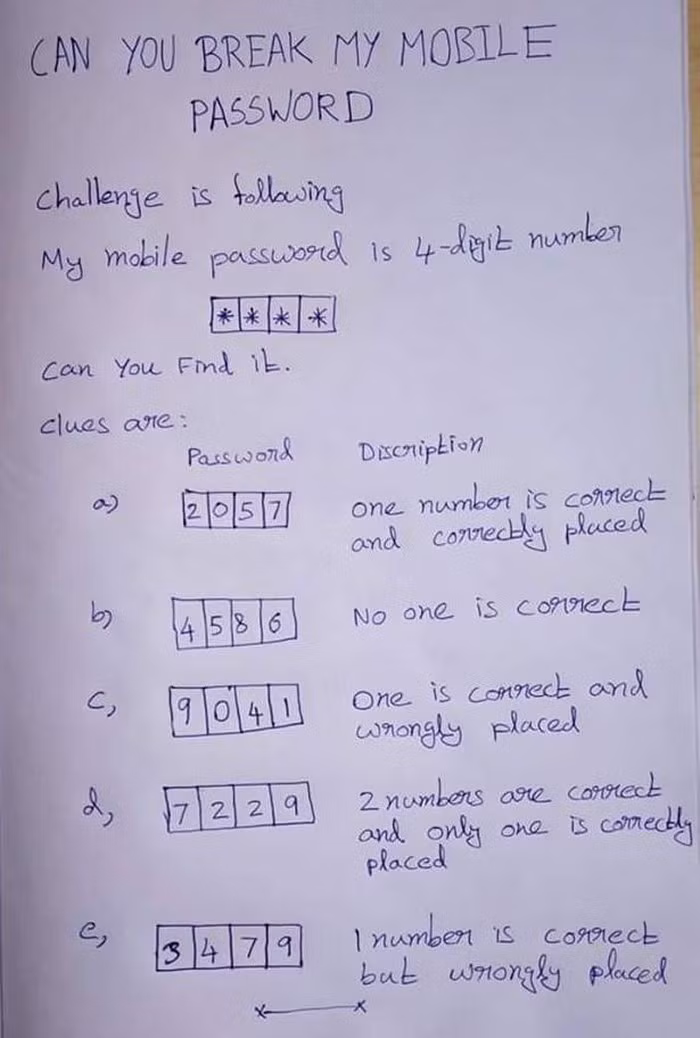 CAN YOU BREAK MY MOBILE
PASSWORD
Challenge is following
My mobile password is 4-digit number
* * * *
Can You Find it.
Clues are:
Password Discription
a) 2 0 5 7 one number is correct
and correctly placed
b) 4 5 8 6 No one is correct
c, 9 0 4 1 One is correct and
wrongly placed
d, 7 2 2 9 2 numbers are correct
and only one is correctly
placed
e, 3 4 7 9 1 number is correct
but wrongly placed